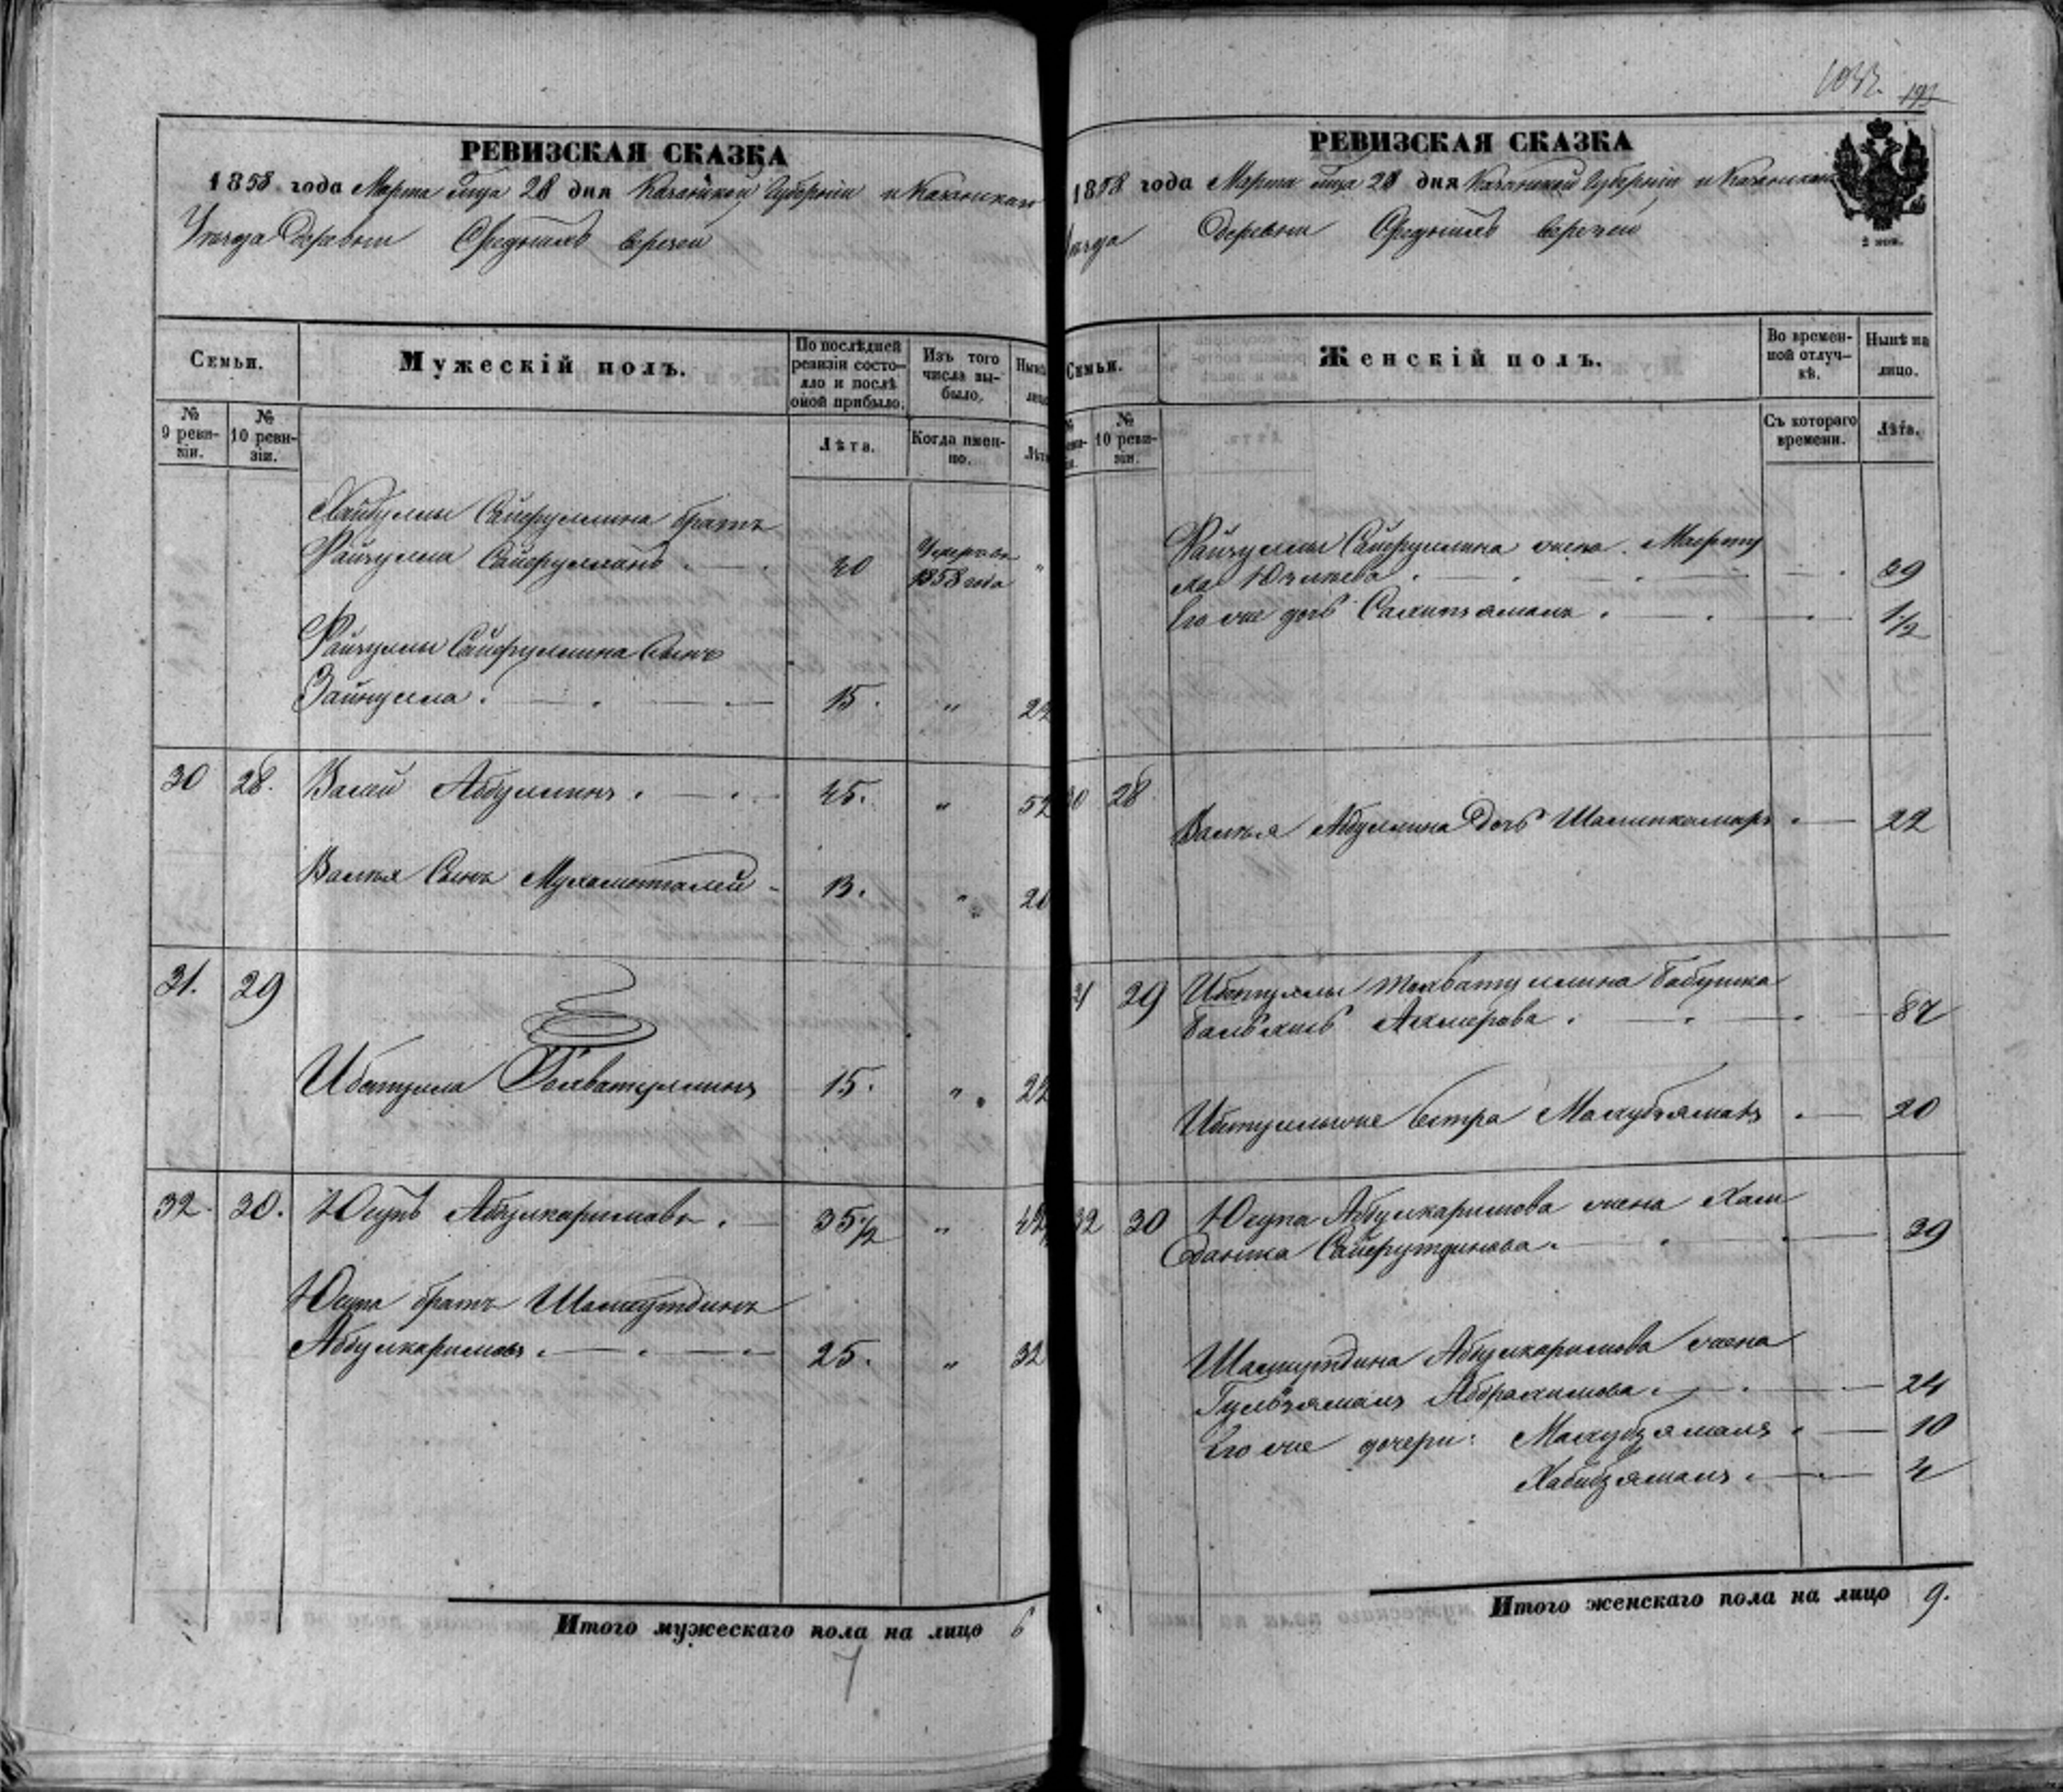 1033. 193
РЕВИЗСКАЯ СКАЗКА
1858 года Марта м-ца 28 дня Казанской Губерніи и Казанскаго
Уѣзда Деревни Среднихъ Верезей
Семьи.
№ 9 реви-зіи.
№ 10 реви-зіи.
Мужескій полъ.
По послѣдней ревизіи состо-яло и послѣ оной прибыло.
Лѣта.
Изъ того числа вы-было.
Когда имен-но.
Нынѣ
Лѣта
Хайбуллы Сайфуллина братъ
Файзулла Сайфуллинъ . — . 40 Умеръ въ 1858 года "
Файзуллы Сайфуллина сынъ
Зайнулла . — . — . — 15. " 22
30 28. Валей Абдуллинъ . — . 45. " 52
Валея Сынъ Мухаметвалей - 13. " 20
31. 29
Ибатулла Тохватуллинъ 15. " 22
32. 30. Юсупъ Абдулкаримовъ . — 35½ " 42
Юсупа братъ Шамсутдинъ
Абдулкаримовъ . — . — . — 25. " 32
Итого мужескаго пола на лицо 6
7
РЕВИЗСКАЯ СКАЗКА
1858 года Марта м-ца 28 дня Казанской Губерніи и Казанскаго
Уѣзда Деревни Среднихъ Верезей
2 коп.
Семьи.
№ 10 реви-зіи.
Женскій полъ.
Во времен-ной отлуч-кѣ.
Съ котораго времени.
Нынѣ на лицо.
Лѣта.
Файзуллы Сайфуллина жена Мафту
ха Юзѣева . — . — . — 39
Его же дочь Сахипзямалъ . — . — . — 1½
30 28 Валея Абдуллина Дочь Шамсикамаръ . — 22
31 29 Ибатуллы Тохватуллина бабушка
Бальхисъ Ахмерова . — . — . — 87
Ибатуллы же сестра Махубзямалъ . — 20
32 30 Юсупа Абдулкаримова жена Хам
дания Сайфутдинова . — . — . — 39
Шамсутдина Абдулкаримова жена
Гульзямалъ Абдрахимова . — . — 24
Его же дочери: Махубзямалъ . — 10
Хабибзямалъ . — . — 4
Итого женскаго пола на лицо 9.